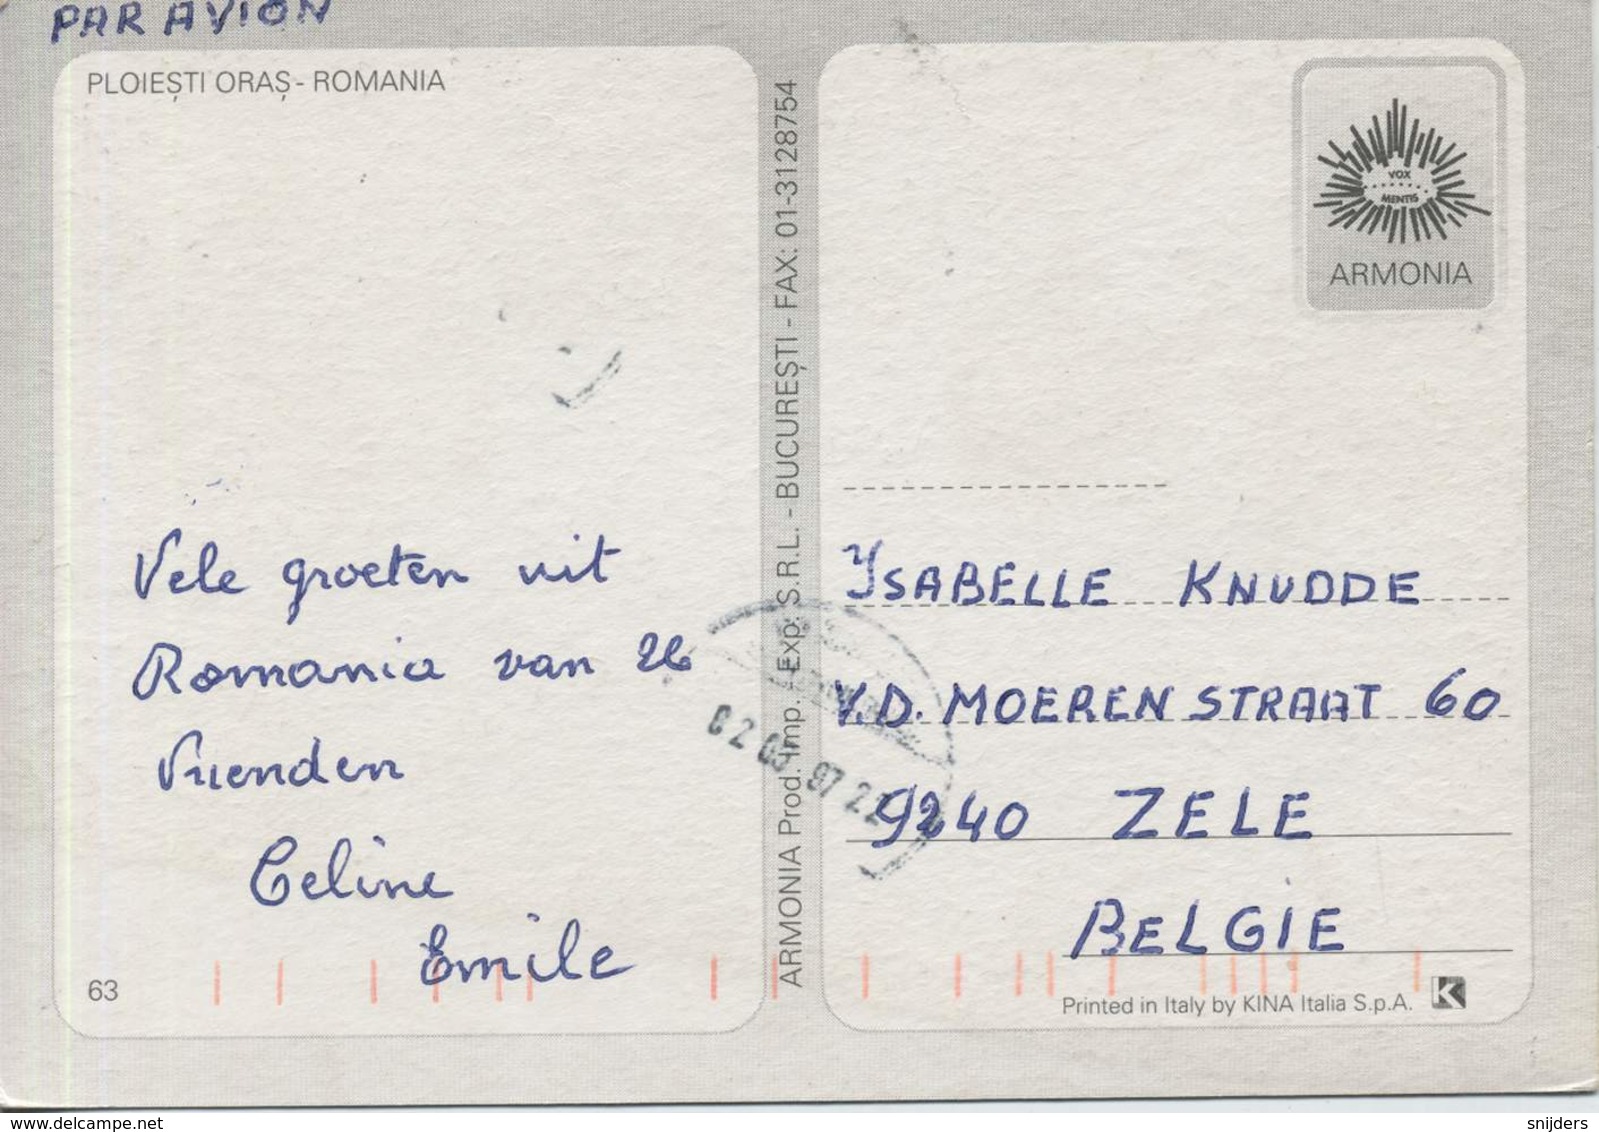 PAR AVION
PLOIEȘTI ORAȘ - ROMANIA
Vele groeten uit
Romania van 26
Vrienden
Celine
Emile
63
ARMONIA Prod. Imp. Exp. S.R.L. - BUCUREȘTI - FAX: 01-3128754
VOX
MENTIS
ARMONIA
YSABELLE KNUDDE
V.D. MOEREN STRAAT 60
9240 ZELE
BELGIE
Printed in Italy by KINA Italia S.p.A.
K
delcampe.net
snijders